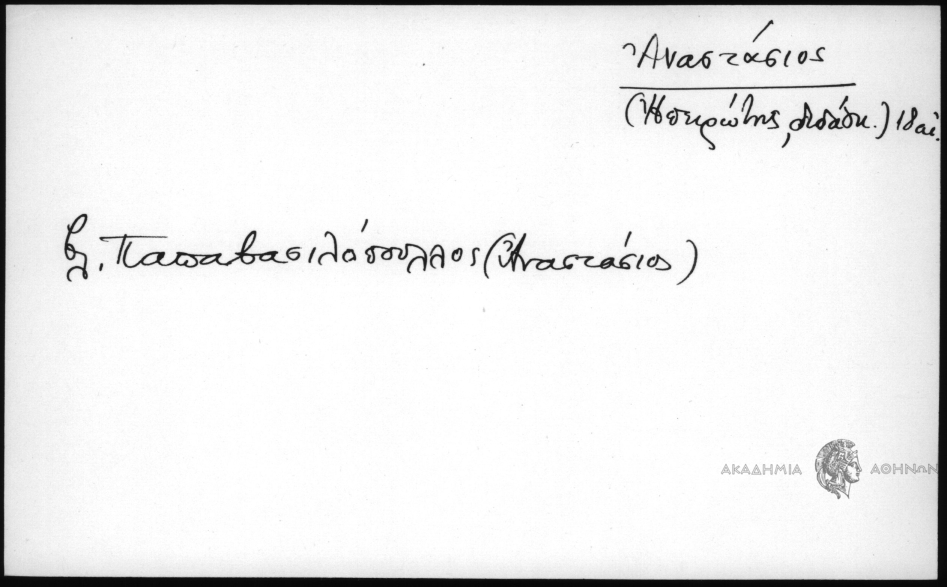 Ἀναστάσιος
(Ἠπειρώτης, διδάσκ.) 18 αἰ.
βλ. Παπαβασιλόπουλλος (Ἀναστάσιος)
ΑΚΑΔΗΜΙΑ ΑΘΗΝΩΝ